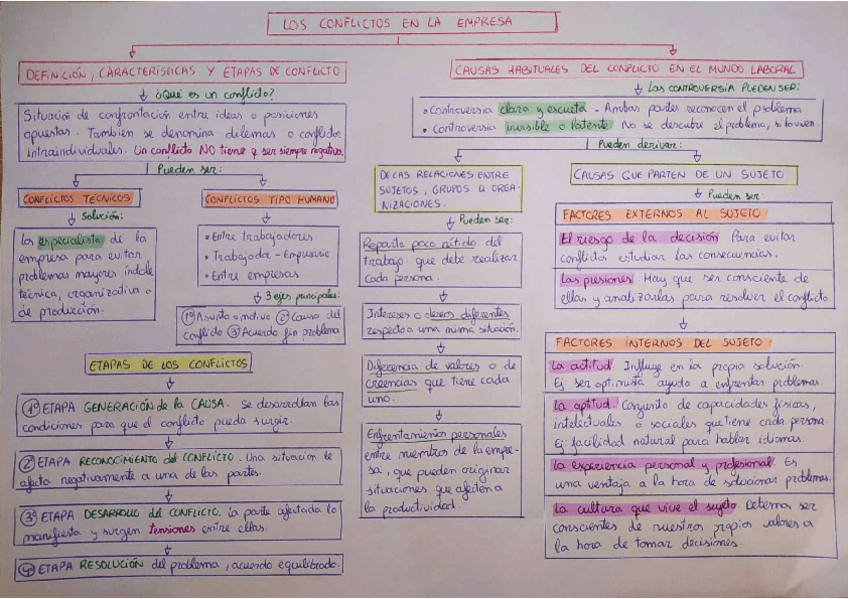 LOS CONFLICTOS EN LA EMPRESA
DEFINICIÓN, CARACTERÍSTICAS Y ETAPAS DE CONFLICTO
¿Qué es un conflicto?
Situación de confrontación entre ideas o posiciones
opuestas. También se denomina dilemas o conflictos
intraindividuales. Un conflicto NO tiene q ser siempre negativo.
Pueden ser:
CONFLICTOS TÉCNICOS
Solución:
Los especialista de la
empresa para evitar
problemas mayores índole
técnica, organizativa o
de producción.
CONFLICTOS TIPO HUMANO
• Entre trabajadores
• Trabajador - Empresario
• Entre empresas
3 ejes principales:
1º Asunto o motivo 2º Causa del
conflicto 3º Acuerdo fin problema
ETAPAS DE LOS CONFLICTOS
1º ETAPA GENERACIÓN de la CAUSA. Se desarrollan las
condiciones para que el conflicto pueda surgir.
2º ETAPA RECONOCIMIENTO del CONFLICTO. Una situación le
afecta negativamente a una de las partes.
3º ETAPA DESARROLLO del CONFLICTO. La parte afectada lo
manifiesta y surgen tensiones entre ellas.
4º ETAPA RESOLUCIÓN del problema, acuerdo equilibrado.
CAUSAS HABITUALES DEL CONFLICTO EN EL MUNDO LABORAL
Las CONTROVERSIA PUEDEN SER:
• Controversia clara y escueta. Ambas partes reconocen el problema
• Controversia invisible o latente No se descubre el problema, si lo viven.
Pueden derivar:
DE LAS RELACIONES ENTRE
SUJETOS, GRUPOS U ORGA-
NIZACIONES.
Pueden ser:
Reparto poco nítido del
trabajo que debe realizar
cada persona.
Intereses o deseos diferentes
respecto a una misma situación.
Diferencia de valores o de
creencias que tiene cada
uno.
Enfrentamientos personales
entre miembros de la empre-
sa, que pueden originar
situaciones que afecten a
la productividad.
CAUSAS QUE PARTEN DE UN SUJETO
Pueden ser:
FACTORES EXTERNOS AL SUJETO
El riesgo de la decisión Para evitar
conflictos estudiar las consecuencias.
Las presiones. Hay que ser consciente de
ellas y analizarlas para resolver el conflicto.
FACTORES INTERNOS DEL SUJETO
La actitud Influye en la propia solución.
Ej ser optimista ayuda a enfrentar problemas.
La aptitud. Conjunto de capacidades físicas,
intelectuales o sociales que tiene cada persona.
Ej: facilidad natural para hablar idiomas.
La experiencia personal y profesional. Es
una ventaja a la hora de solucionar problemas.
La cultura que vive el sujeto. Debemos ser
conscientes de nuestros propios valores a
la hora de tomar decisiones.